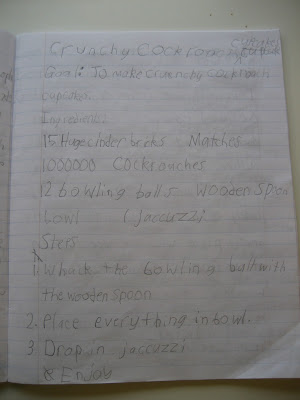 Crunchy Cockroach
Goal: To make crunchy cockroach
cupcakes.
Ingredients:
15 Huge cinder bricks Matches
1000000 Cockrauches
12 bowling balls Wooden spoon
bowl 1 jaccuzzi
Steps
1. Whack the bowling ball with
the wooden spoon
2. Place everything in bowl.
3 Drop in jaccuzzi
Enjoy